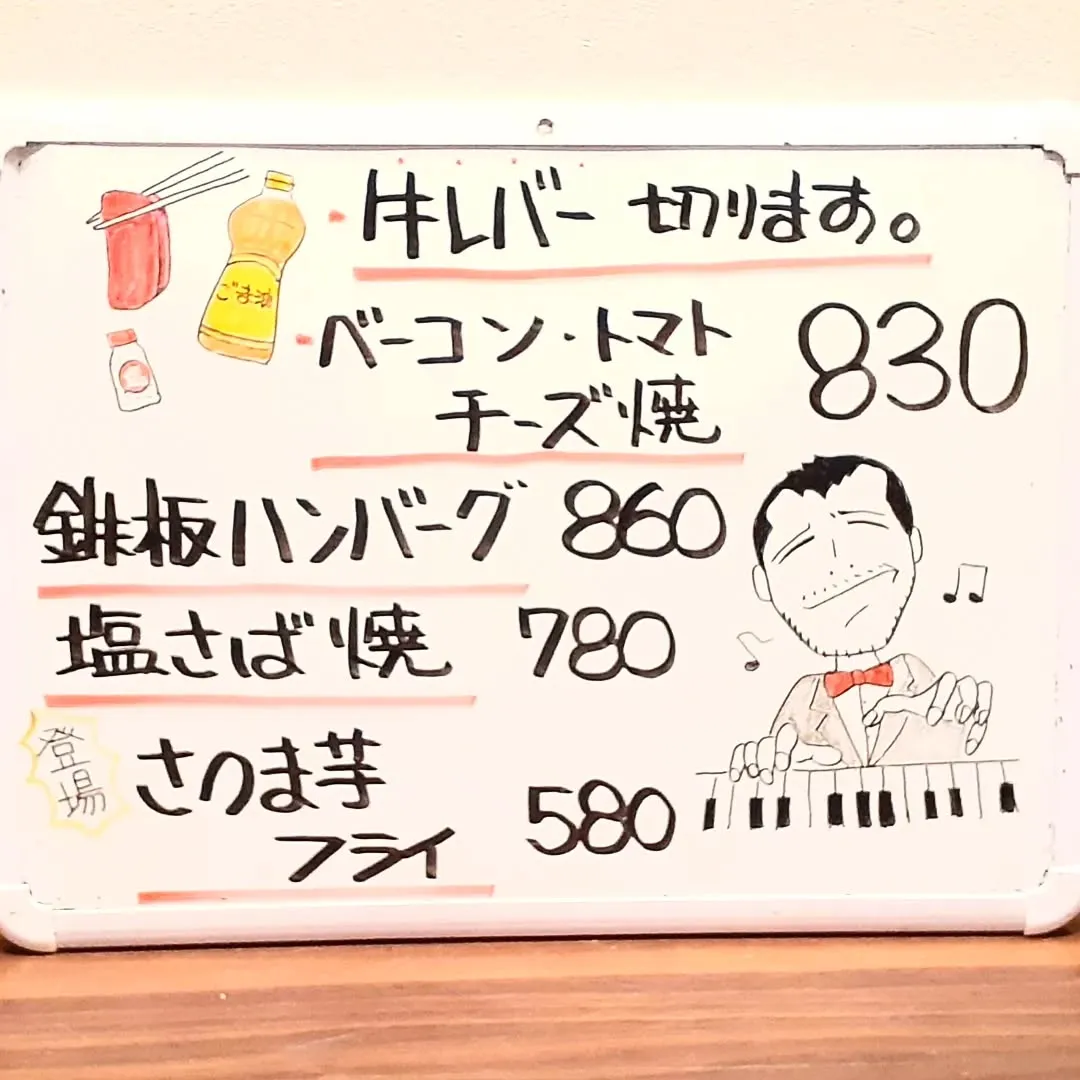 ごま油
・牛レバー 切ります。
・ベーコン・トマト 830
チーズ焼
鉄板ハンバーグ 860
塩さば焼 780
登場
さつま芋
フライ 580